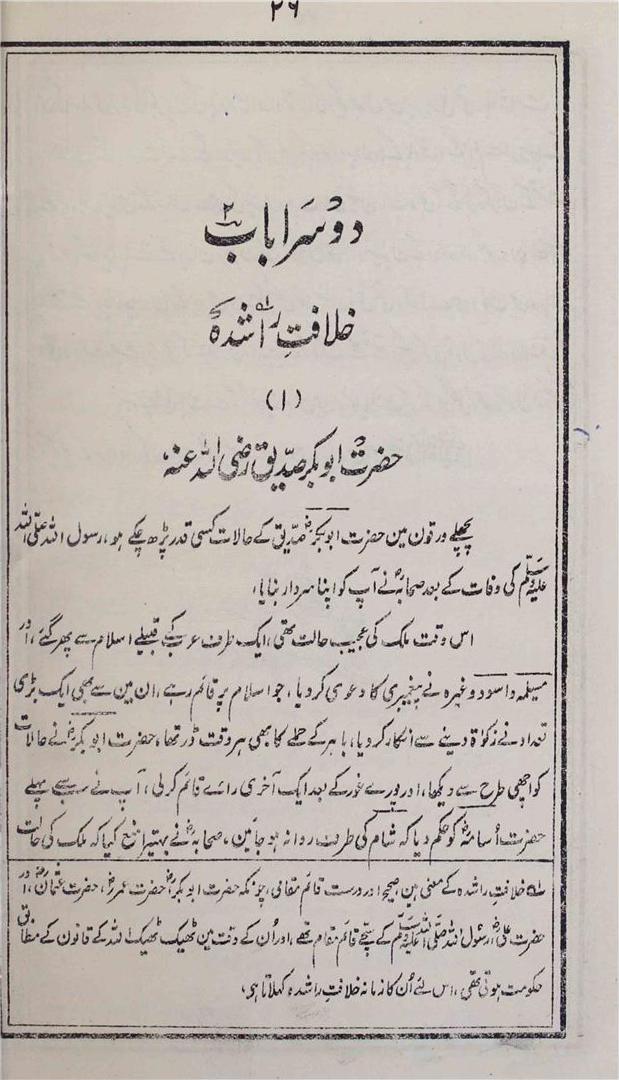 ۲۶
دوسرا باب ۲
خلافتِ راشدہ
(۱)
حضرت ابوبکر صدیق رضی اللہ عنہ
پچھلے ورقون مین حضرت ابوبکرؓ صدیق کے حالات کسی قدر پڑھ چکے ہو، رسول اللہ صلی اللہ
علیہ وسلم کی وفات کے بعد صحابہؓ نے آپ کو اپنا سردار بنایا،
اس وقت ملک کی عجیب حالت تھی، ایک طرف عرب کے قبیلے اسلام سے پھر گئے، اور
مسیلمہ و اسود وغیرہ نے پیغمبری کا دعوی کر دیا، جو اسلام پر قائم رہے، ان مین سے بھی ایک بڑی
تعداد نے زکوٰۃ دینے سے انکار کر دیا، باہر کے حملے کا بھی ہر وقت ڈر تھا، حضرت ابوبکرؓ نے حالات
کو اچھی طرح سے دیکھا، اور پورے غور کے بعد ایک آخری رائے قائم کر لی، آپ نے سب سے پہلے
حضرت اُسامہؓ کو حکم دیا کہ شام کی طرف روانہ ہو جائین، صحابہؓ نے بہتیرا منع کیا کہ ملک کی حالت
لہ خلافتِ راشدہ کے معنی ہین صحیح اور درست قائم مقامی، چونکہ حضرت ابوبکرؓ، حضرت عمرؓ، حضرت عثمانؓ، اور
حضرت علیؓ رسول اللہ صلی اللہ علیہ وسلم کے سچے قائم مقام تھے، اور اُن کے وقت مین ٹھیک ٹھیک اللہ کے قانون کے مطابق
حکومت ہوتی تھی، اس لئے اُن کا زمانہ خلافتِ راشدہ کہلاتا ہی،